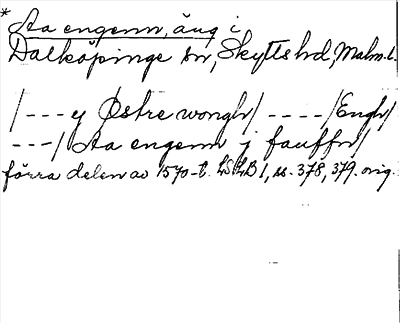 * Aa engenn, äng i
Dalköpinge sn, Skytts hd, Malm. l.
/--- y Østre wongh/ ----/Engh/
---/ Aa engenn j fauffn/
förra delen av 1570-t. LSLB 1, ss. 378, 379. orig.